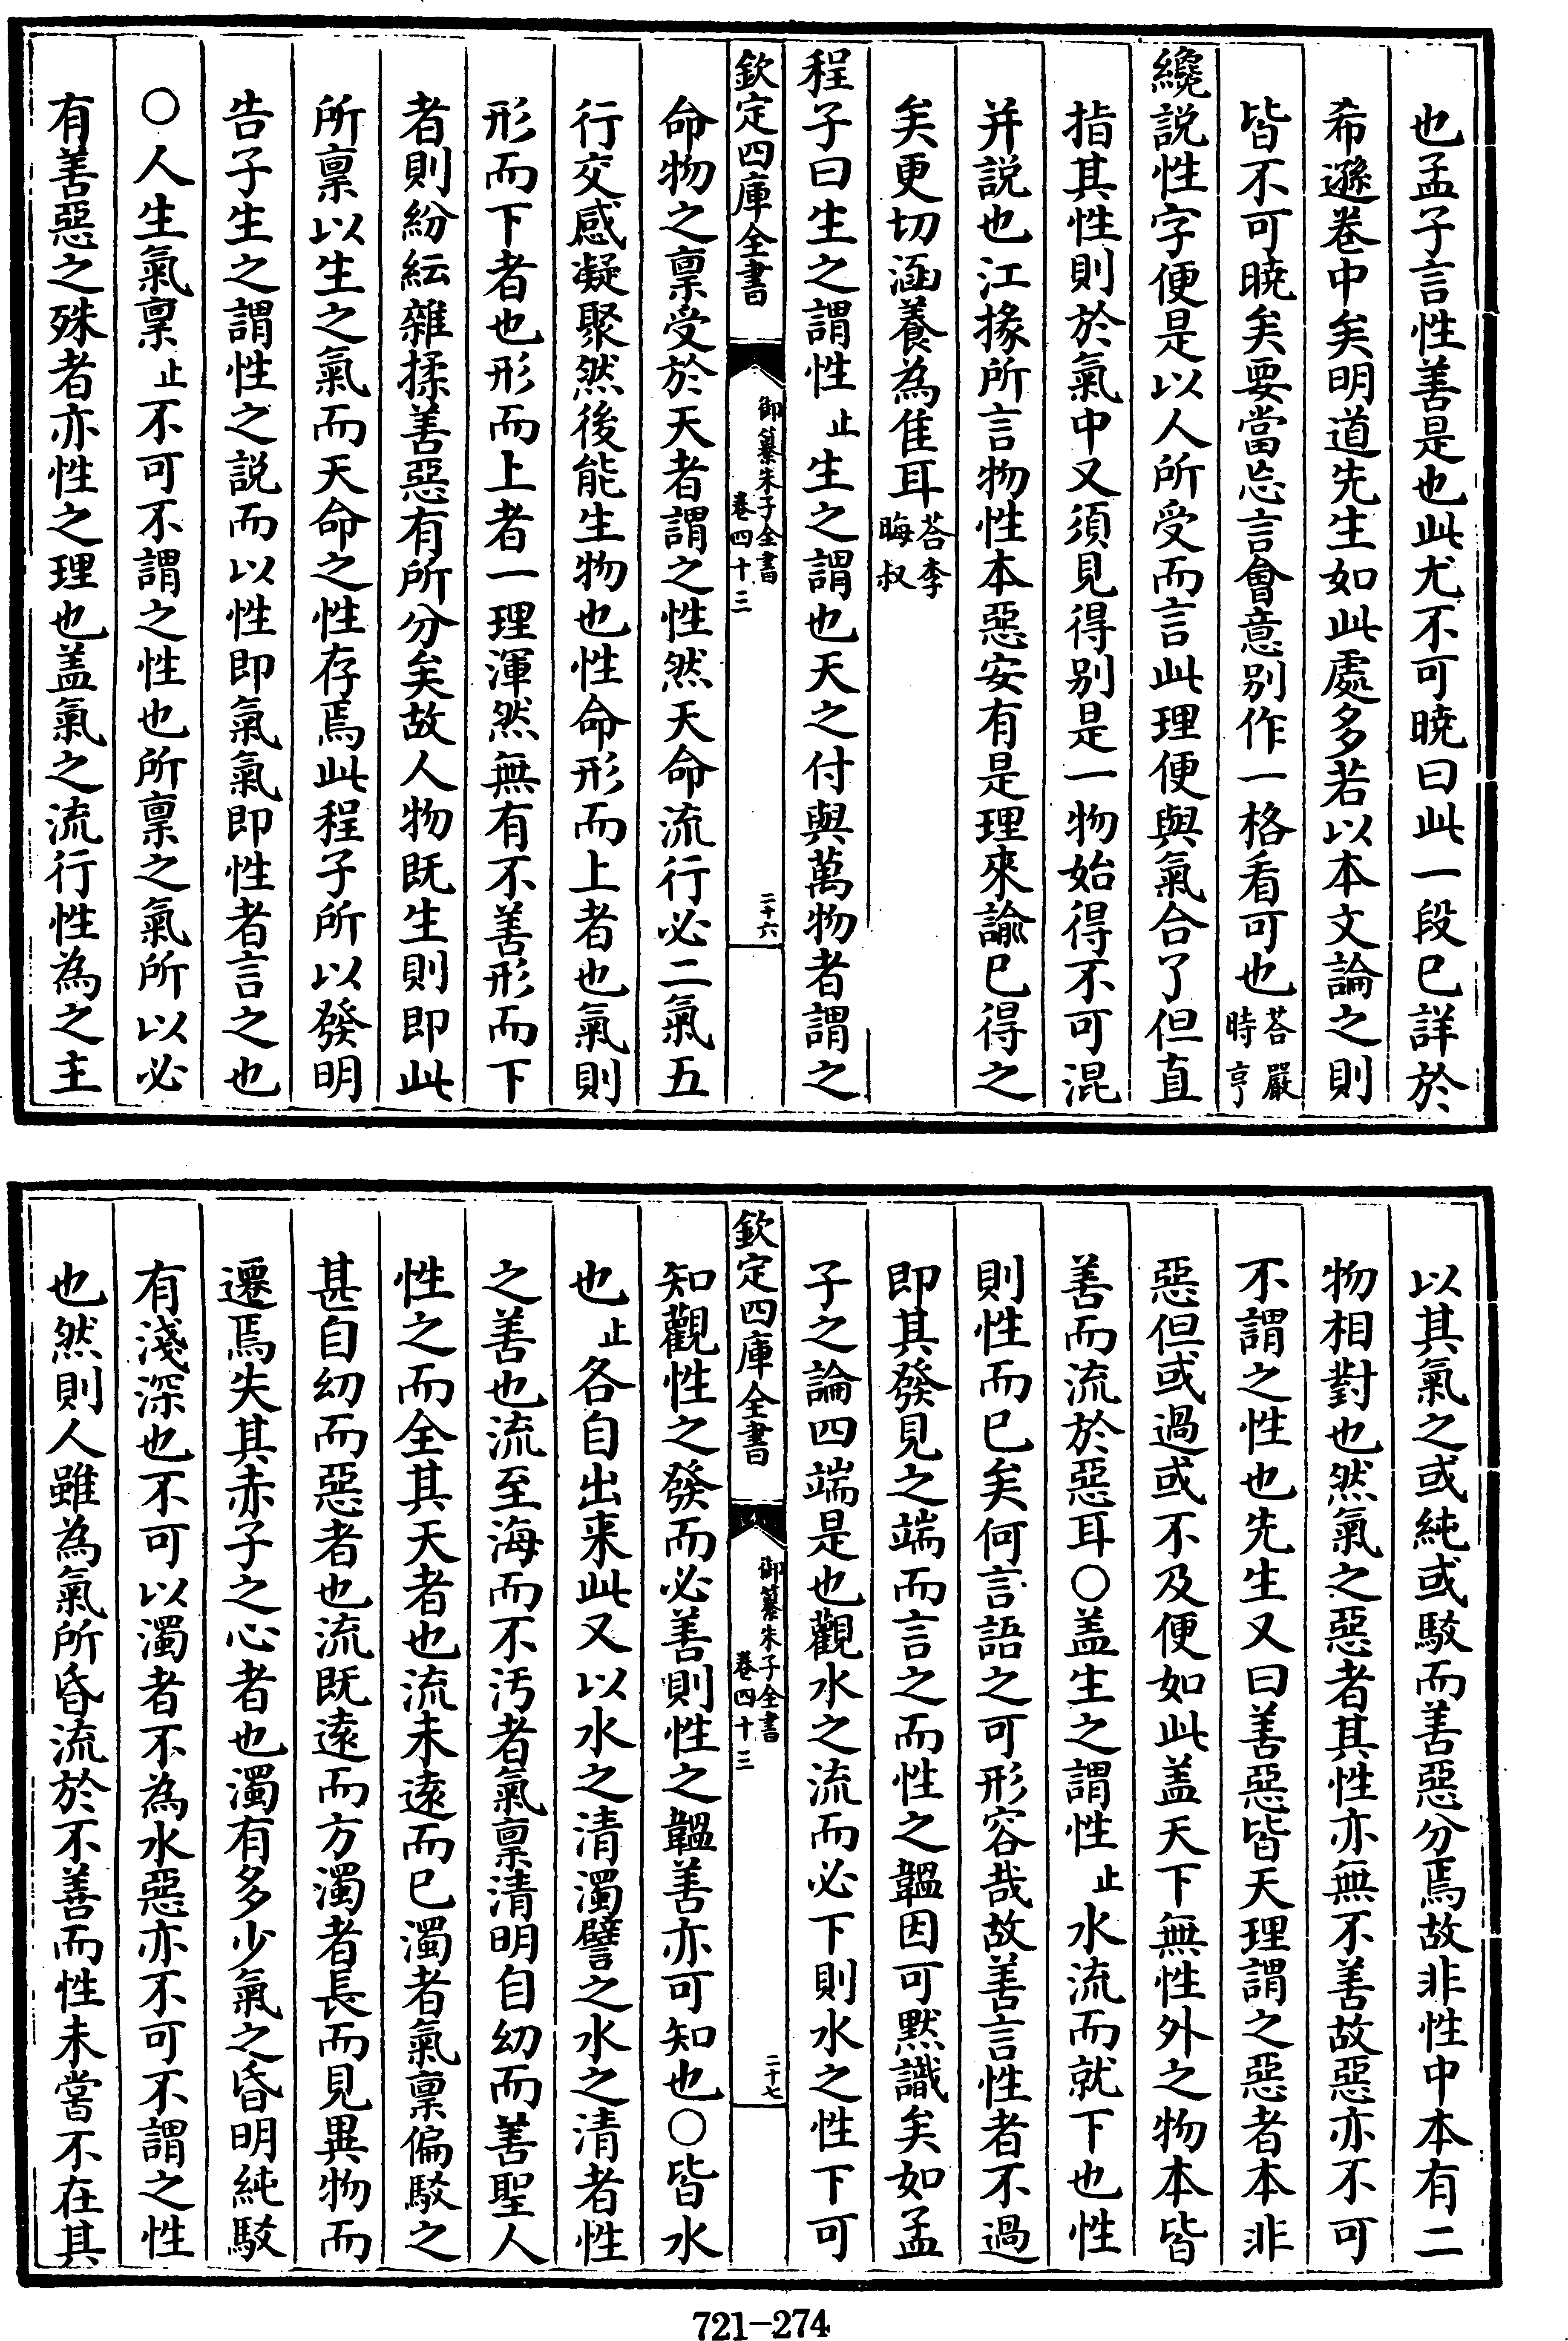 也孟子言性善是也此尤不可曉曰此一段已詳於
希遜卷中矣明道先生如此處多若以本文論之則
皆不可曉矣要當忘言會意别作一格看可也荅嚴時亨
纔説性字便是以人所受而言此理便與氣合了但直
指其性則於氣中又須見得别是一物始得不可混
并説也江掾所言物性本惡安有是理來諭已得之
矣更切涵養為隹耳荅李晦叔
程子曰生之謂性止生之謂也天之付與萬物者謂之
欽定四庫全書
御纂朱子全書
卷四十三
二十六
命物之禀受於天者謂之性然天命流行必二氣五
行交感凝聚然後能生物也性命形而上者也氣則
形而下者也形而上者一理渾然無有不善形而下
者則紛紜雜揉善惡有所分矣故人物既生則即此
所禀以生之氣而天命之性存焉此程子所以發明
告子生之謂性之説而以性即氣氣即性者言之也
○人生氣禀止不可不謂之性也所禀之氣所以必
有善惡之殊者亦性之理也盖氣之流行性為之主
以其氣之或純或駁而善惡分焉故非性中本有二
物相對也然氣之惡者其性亦無不善故惡亦不可
不謂之性也先生又曰善惡皆天理謂之惡者本非
惡但或過或不及便如此盖天下無性外之物本皆
善而流於惡耳○盖生之謂性止水流而就下也性
則性而已矣何言語之可形容哉故善言性者不過
即其發見之端而言之而性之韞因可默識矣如孟
子之論四端是也觀水之流而必下則水之性下可
欽定四庫全書
御纂朱子全書
卷四十三
二十七
知觀性之發而必善則性之韞善亦可知也○皆水
也止各自出來此又以水之清濁譬之水之清者性
之善也流至海而不汚者氣禀清明自幼而善聖人
性之而全其天者也流未遠而已濁者氣禀偏駁之
甚自幼而惡者也流既遠而方濁者長而見異物而
遷焉失其赤子之心者也濁有多少氣之昏明純駁
有淺深也不可以濁者不為水惡亦不可不謂之性
也然則人雖為氣所昏流於不善而性未嘗不在其
721-274